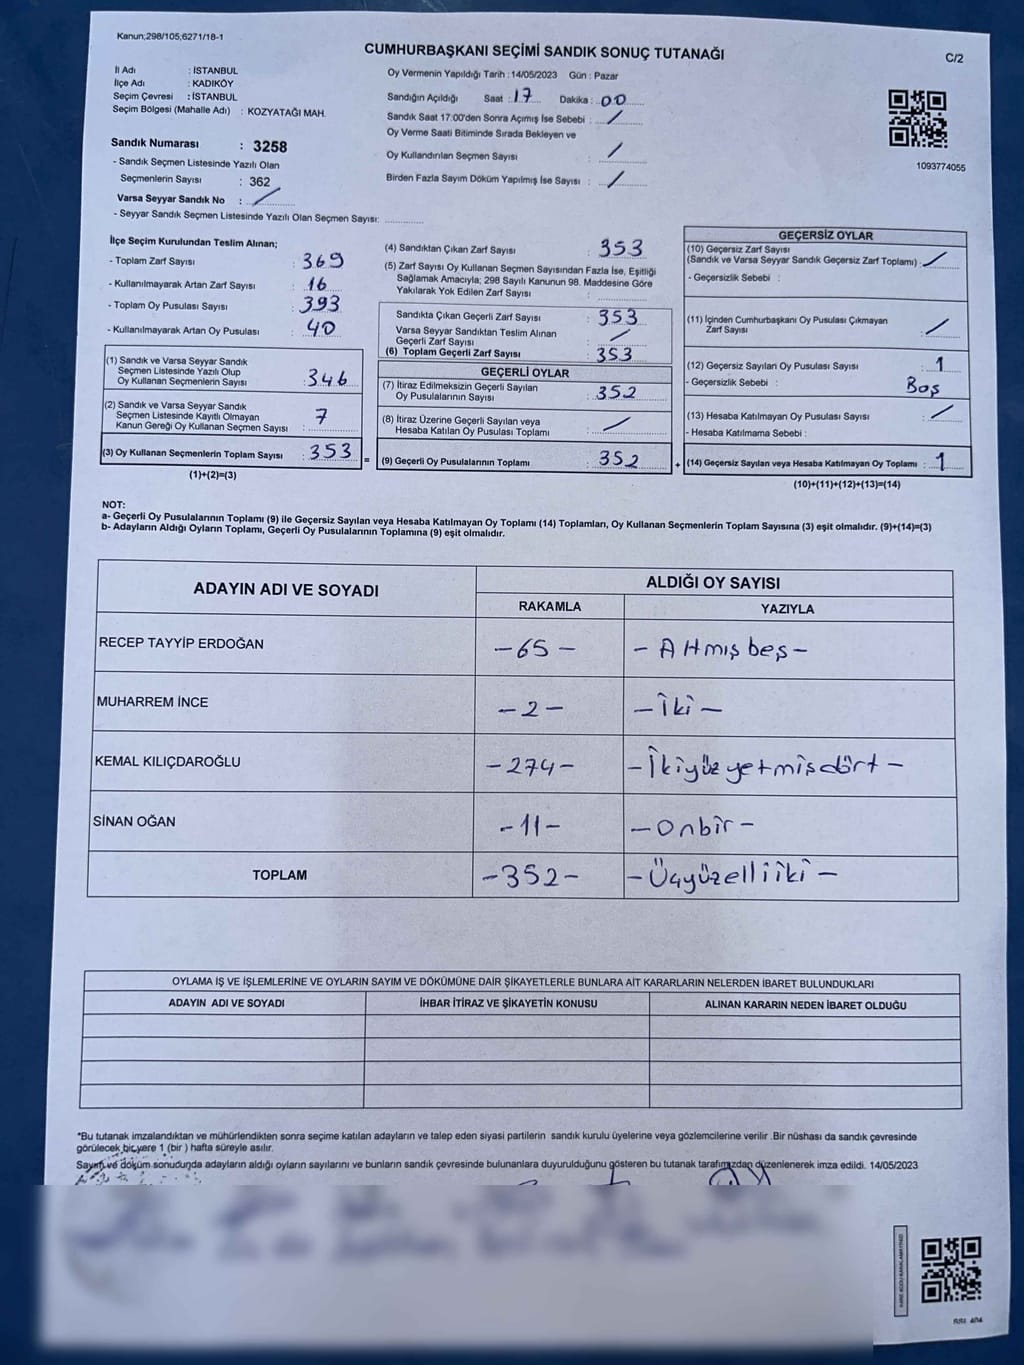 Kanun;298/105,6271/18-1
CUMHURBAŞKANI SEÇİMİ SANDIK SONUÇ TUTANAĞI
C/2
İl Adı : İSTANBUL
İlçe Adı : KADIKÖY
Seçim Çevresi : İSTANBUL
Seçim Bölgesi (Mahalle Adı) : KOZYATAĞI MAH.
Oy Vermenin Yapıldığı Tarih : 14/05/2023 Gün : Pazar
Sandığın Açıldığı Saat : 17 Dakika : 00
Sandık Saat 17:00'den Sonra Açımış İse Sebebi : /
Oy Verme Saati Bitiminde Sırada Bekleyen ve
Oy Kullandırılan Seçmen Sayısı : /
Birden Fazla Sayım Döküm Yapılmış İse Sayısı : /
1093774055
Sandık Numarası : 3258
- Sandık Seçmen Listesinde Yazılı Olan
Seçmenlerin Sayısı : 362
Varsa Seyyar Sandık No : /
- Seyyar Sandık Seçmen Listesinde Yazılı Olan Seçmen Sayısı:
İlçe Seçim Kurulundan Teslim Alınan;
- Toplam Zarf Sayısı : 369
- Kullanılmayarak Artan Zarf Sayısı : 16
- Toplam Oy Pusulası Sayısı : 393
- Kullanılmayarak Artan Oy Pusulası : 40
(1) Sandık ve Varsa Seyyar Sandık
Seçmen Listesinde Yazılı Olup
Oy Kullanan Seçmenlerin Sayısı : 346
(2) Sandık ve Varsa Seyyar Sandık
Seçmen Listesinde Kayıtlı Olmayan
Kanun Gereği Oy Kullanan Seçmen Sayısı : 7
(3) Oy Kullanan Seçmenlerin Toplam Sayısı : 353 =
(1)+(2)=(3)
(4) Sandıktan Çıkan Zarf Sayısı : 353
(5) Zarf Sayısı Oy Kullanan Seçmen Sayısından Fazla İse, Eşitliği
Sağlamak Amacıyla; 298 Sayılı Kanunun 98. Maddesine Göre
Yakılarak Yok Edilen Zarf Sayısı :
Sandıkta Çıkan Geçerli Zarf Sayısı : 353
Varsa Seyyar Sandıktan Teslim Alınan
Geçerli Zarf Sayısı : /
(6) Toplam Geçerli Zarf Sayısı : 353
GEÇERLİ OYLAR
(7) İtiraz Edilmeksizin Geçerli Sayılan
Oy Pusulalarının Sayısı : 352
(8) İtiraz Üzerine Geçerli Sayılan veya
Hesaba Katılan Oy Pusulası Toplamı : /
(9) Geçerli Oy Pusulalarının Toplamı : 352 +
GEÇERSİZ OYLAR
(10) Geçersiz Zarf Sayısı
(Sandık ve Varsa Seyyar Sandık Geçersiz Zarf Toplamı) : /
- Geçersizlik Sebebi :
(11) İçinden Cumhurbaşkanı Oy Pusulası Çıkmayan
Zarf Sayısı : /
(12) Geçersiz Sayılan Oy Pusulası Sayısı : 1
- Geçersizlik Sebebi : Boş
(13) Hesaba Katılmayan Oy Pusulası Sayısı : /
- Hesaba Katılmama Sebebi :
(14) Geçersiz Sayılan veya Hesaba Katılmayan Oy Toplamı : 1
(10)+(11)+(12)+(13)=(14)
NOT:
a- Geçerli Oy Pusulalarının Toplamı (9) ile Geçersiz Sayılan veya Hesaba Katılmayan Oy Toplamı (14) Toplamları, Oy Kullanan Seçmenlerin Toplam Sayısına (3) eşit olmalıdır. (9)+(14)=(3)
b- Adayların Aldığı Oyların Toplamı, Geçerli Oy Pusulalarının Toplamına (9) eşit olmalıdır.
ADAYIN ADI VE SOYADI
ALDIĞI OY SAYISI
RAKAMLA YAZIYLA
RECEP TAYYİP ERDOĞAN -65- -Altmışbeş-
MUHARREM İNCE -2- -İki-
KEMAL KILIÇDAROĞLU -274- -İkiyüzyetmişdört-
SİNAN OĞAN -11- -Onbir-
TOPLAM -352- -Üçyüzelliiki-
OYLAMA İŞ VE İŞLEMLERİNE VE OYLARIN SAYIM VE DÖKÜMÜNE DAİR ŞİKAYETLERLE BUNLARA AİT KARARLARIN NELERDEN İBARET BULUNDUKLARI
ADAYIN ADI VE SOYADI İHBAR İTİRAZ VE ŞİKAYETİN KONUSU ALINAN KARARIN NEDEN İBARET OLDUĞU
*Bu tutanak imzalandıktan ve mühürlendikten sonra seçime katılan adayların ve talep eden siyasi partilerin sandık kurulu üyelerine veya gözlemcilerine verilir .Bir nüshası da sandık çevresinde
görülecek bir yere 1 (bir ) hafta süreyle asılır.
Sayım ve döküm sonucunda adayların aldığı oyların sayılarını ve bunların sandık çevresinde bulunanlara duyurulduğunu gösteren bu tutanak tarafımızdan düzenlenerek imza edildi. 14/05/2023